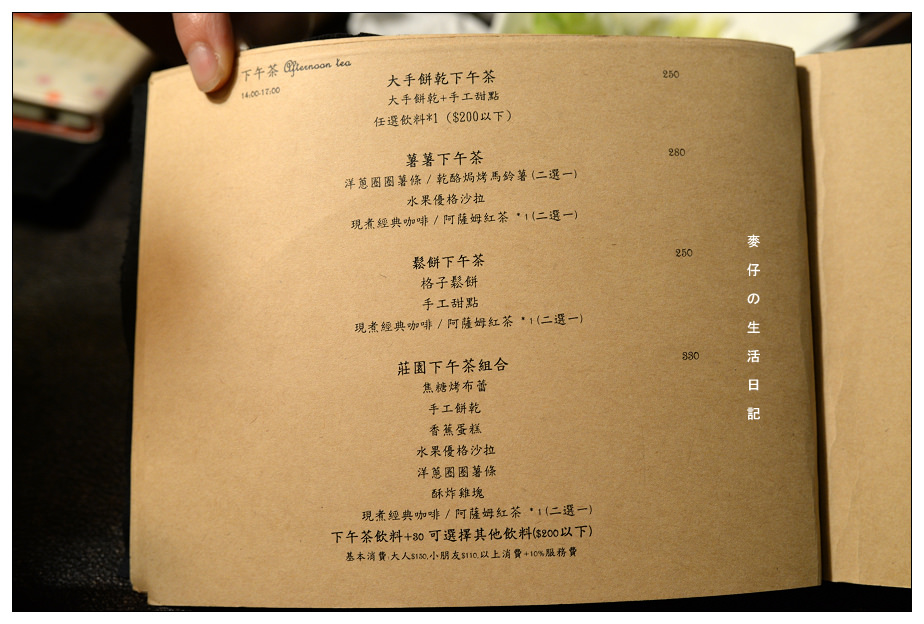 下午茶 Afternoon tea
14:00-17:00
大手餅乾下午茶 250
大手餅乾+手工甜點
任選飲料*1 ($200以下)
薯薯下午茶 280
洋蔥圈圈薯條 / 乾酪焗烤馬鈴薯(二選一)
水果優格沙拉
現煮經典咖啡 / 阿薩姆紅茶 *1(二選一)
鬆餅下午茶 250
格子鬆餅
手工甜點
現煮經典咖啡 / 阿薩姆紅茶 *1(二選一)
莊園下午茶組合 330
焦糖烤布蕾
手工餅乾
香蕉蛋糕
水果優格沙拉
洋蔥圈圈薯條
酥炸雞塊
現煮經典咖啡 / 阿薩姆紅茶 *1(二選一)
下午茶飲料+30 可選擇其他飲料($200以下)
基本消費 大人$150,小朋友$110,以上消費+10%服務費
麥仔の生活日記